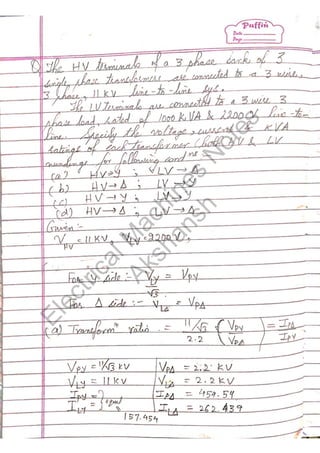 Puffin
Date
Page
Q) The HV terminals of a 3 phase bank of 3
single phase transformers are connected to a 3 wire,
3 phase, 11 kV line-to-line sys.
The LV Terminals are connected to a 3 wire 3
phase load, rated of 1000 kVA & 2200 V line-to-
line. Specify the voltage, current & KVA
ratings of each transformer (both HV & LV
windings for following cond ns
(a) HV → Y ; LV → Δ
(b) HV → Δ ; LV → Y
(c) HV → Y ; LV → Y
(d) HV → Δ ; LV → Δ
Given :-
V HV = 11 KV, V LV = 2200 V,
For Y side :- V LY = V PY
√3
For Δ side :- V LΔ = V PΔ
(a) Transform n ratio = 11/√3 ( V PY ) = I PΔ
2.2 V PΔ I PY
V PY = 11/√3 KV V PΔ = 2.2 KV
V LY = 11 KV V LΔ = 2.2 KV
I PY = I PΔ = 454.54
I LY = I LΔ = 262.439
157.454
Electrical Machines Notes
Akshansh